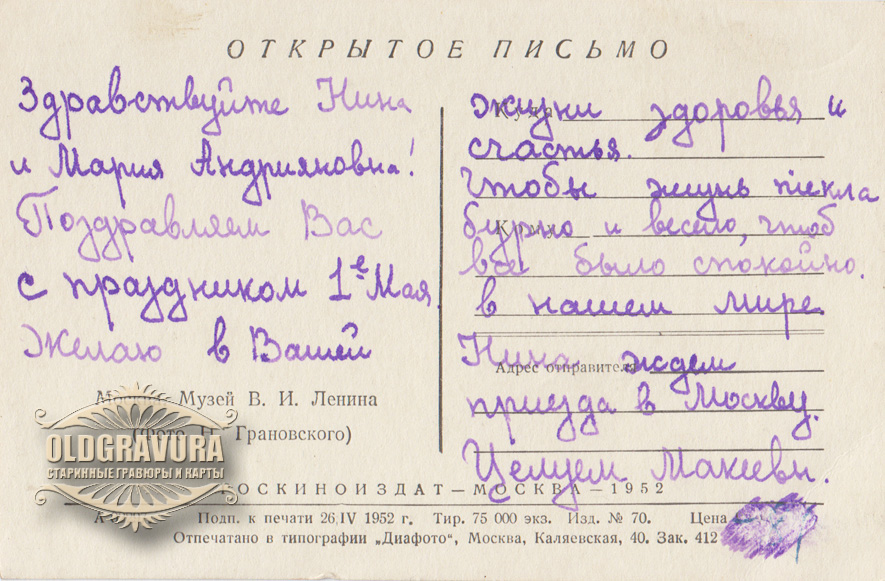 ОТКРЫТОЕ ПИСЬМО
Здравствуйте Нина
и Мария Андрияновна!
Поздравляем Вас
с праздником 1е Мая.
Желаю в Вашей
Музей В. И. Ленина
Грановского)
Куда
жизни здоровья и
счастья.
Чтобы жизнь текла
Кому
бурно и весело, чтоб
все было спокойно.
в нашем мире.
Адрес отправителя
Нина ждем
приезда в Москву.
Целуем Макеевы.
OLDGRAVURA
СТАРИННЫЕ ГРАВЮРЫ И КАРТЫ
ГОСКИНОИЗДАТ—МОСКВА—1952
Подп. к печати 26/IV 1952 г. Тир. 75 000 экз. Изд. № 70. Цена
Отпечатано в типографии „Диафото“, Москва, Каляевская, 40. Зак. 412